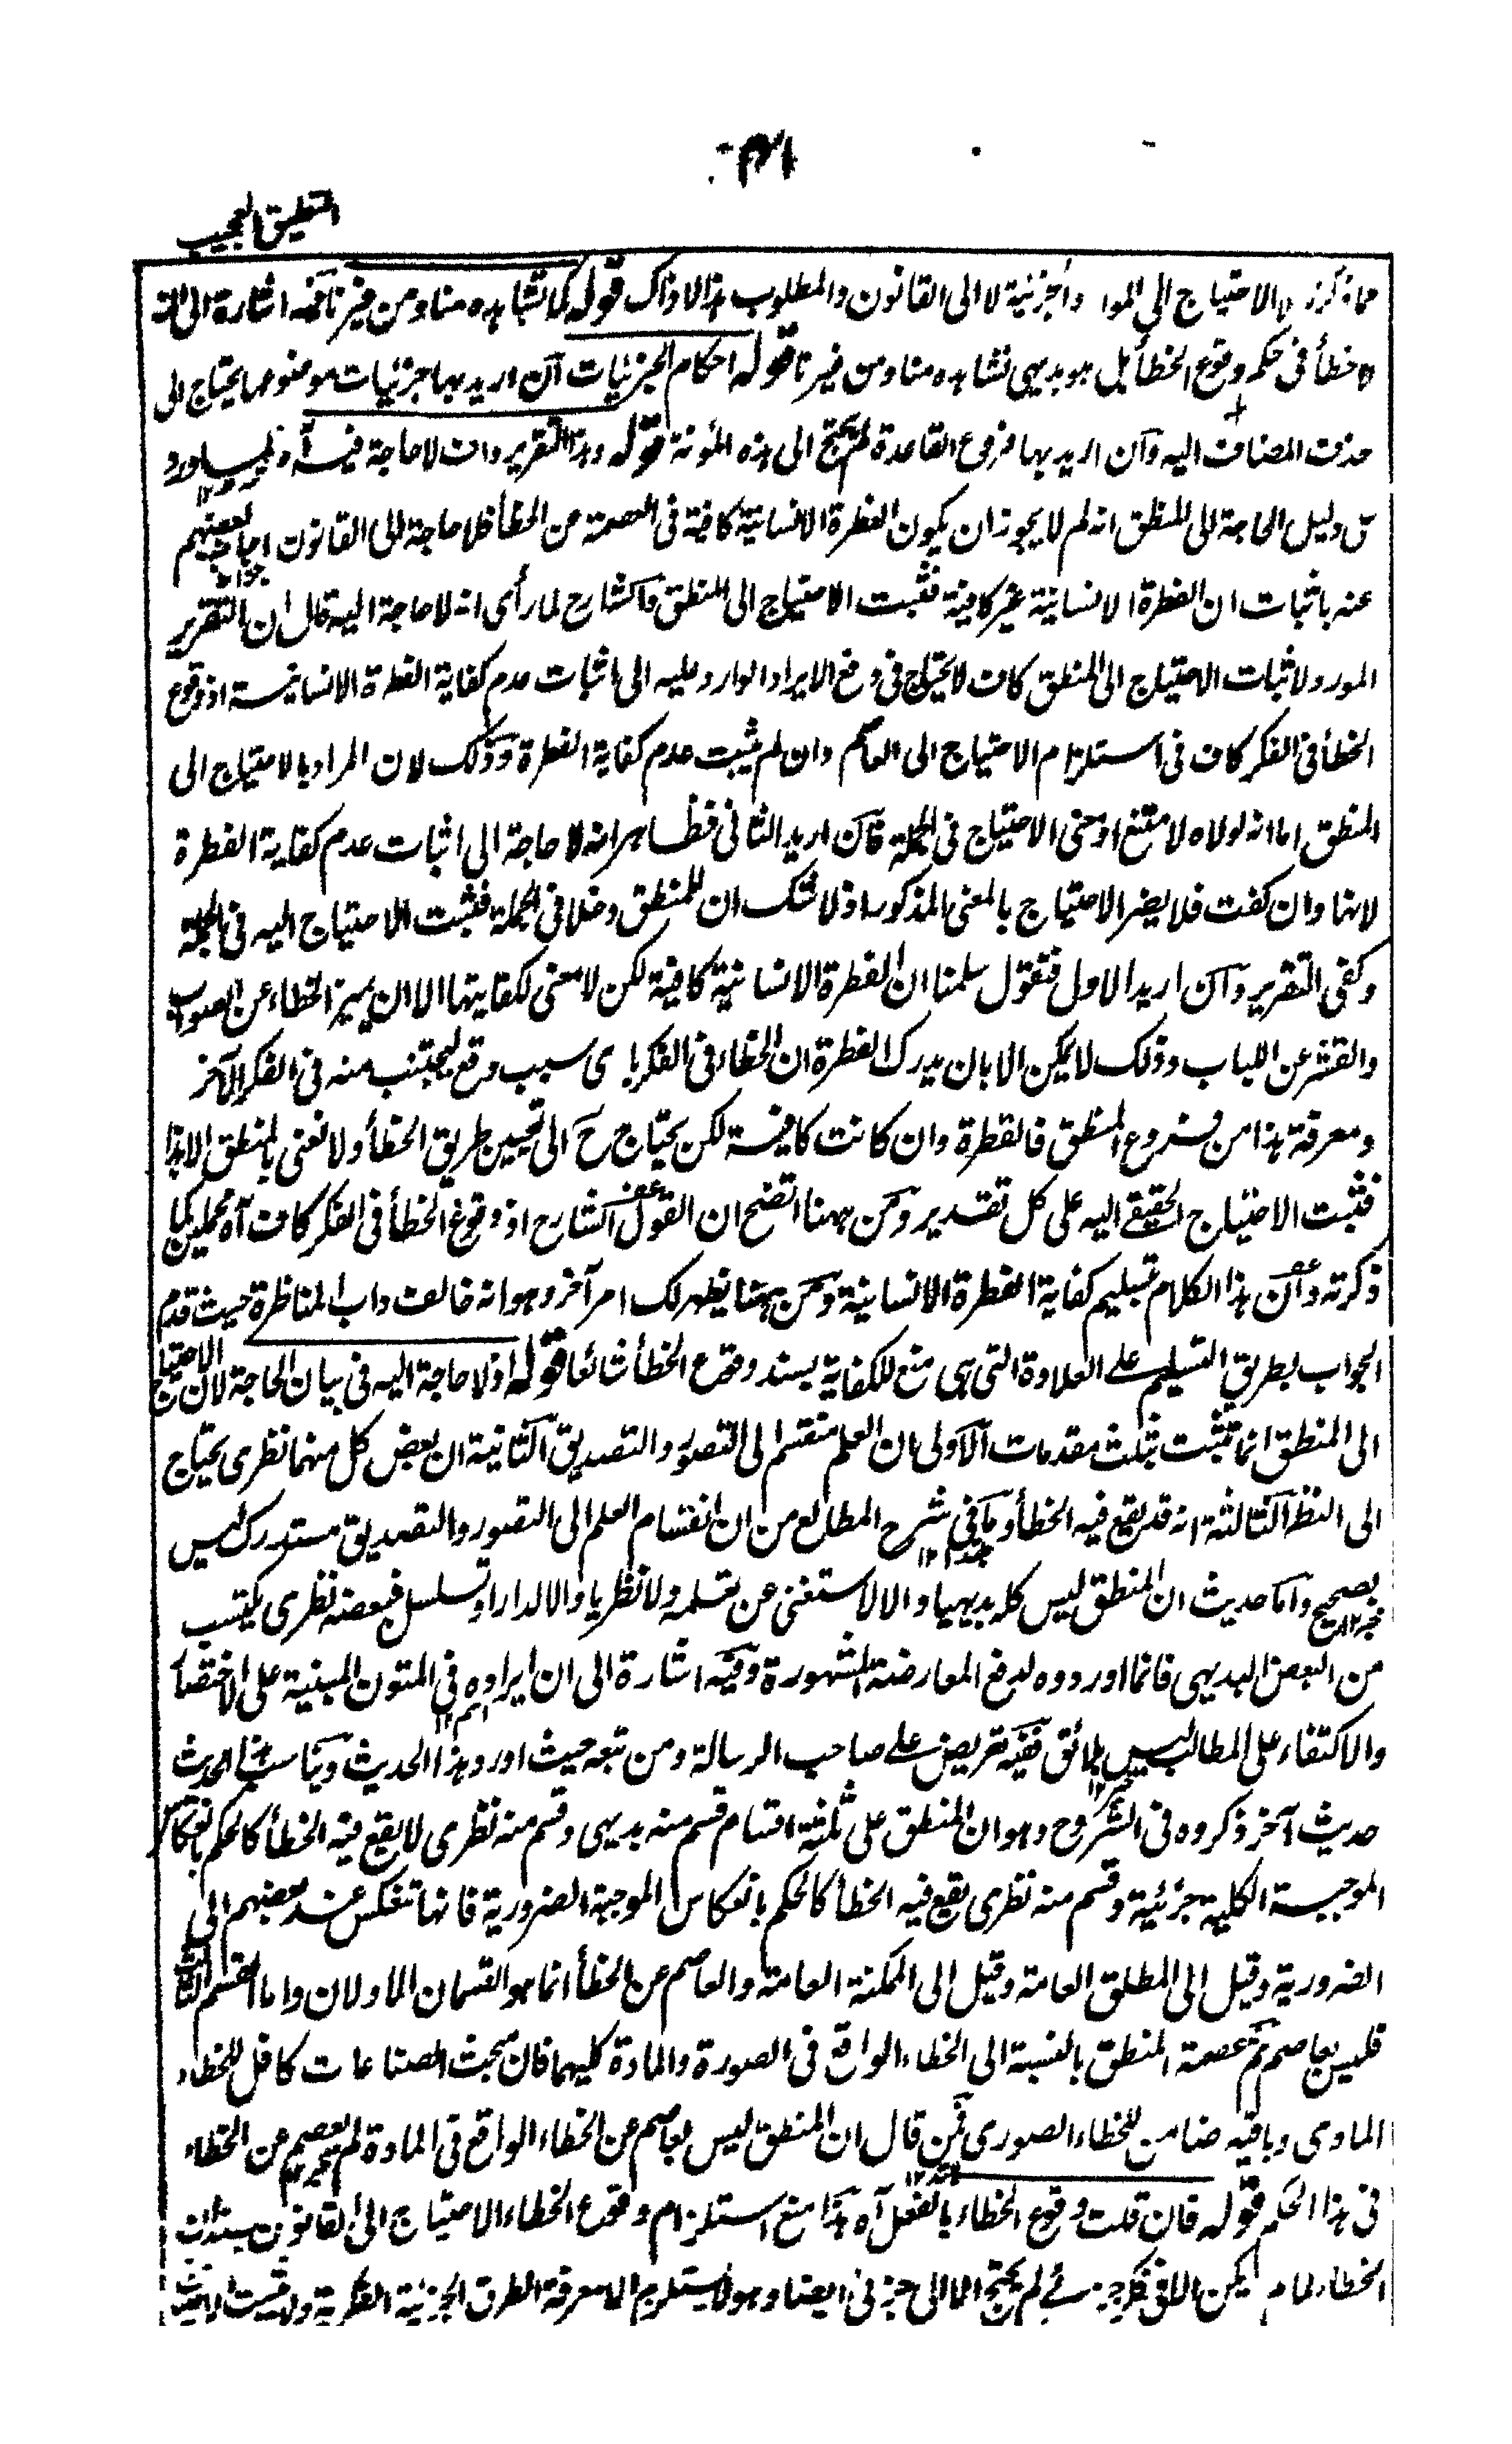 ٣١
التعليق العجيب
مما ذكر الاحتياج الى المواد الجزئية لا الى القانون والمطلوب هذا لا ذاك قوله كما تشاهده منا ومن غيرنا فيه اشارة الى انه
لا خطأ فى حكم وقوع الخطأ بل هو بديهى نشاهده منا ومن غيرنا قوله احكام الجزئيات ان اريد بها جزئيات موضوعها يحتاج الى
حذف المضاف اليه وان اريد بها فروع القاعدة لم يحتج الى هذه المؤنة قوله وهذا التقرير واف لا حاجة فيه
على دليل الحاجة الى المنطق انه لم لا يجوز ان يكون الفطرة الانسانية كافية فى العصمة من الخطأ فلا حاجة الى القانون اجاب بعضهم
عنه باثبات ان الفطرة الانسانية غير كافية فثبت الاحتياج الى المنطق فالشارح لما رأى انه لا حاجة اليه قال ان التقرير
المورد لاثبات الاحتياج الى المنطق كاف لا يحتاج فى دفع الايراد الوارد عليه الى اثبات عدم كفاية الفطرة الانسانية اذ وقوع
الخطأ فى الفكر كاف فى استلزام الاحتياج الى العاصم وان لم يثبت عدم كفاية الفطرة وذلك لان المراد بالاحتياج الى
المنطق اما انه لولاه لامتنع او معنى الاحتياج فى الجملة فان اريد الثانى فظاهر انه لا حاجة الى اثبات عدم كفاية الفطرة
لانها وان كفت فلا يضر الاحتياج بالمعنى المذكور اذ لا شك ان للمنطق دخلا فى الجملة فثبت الاحتياج اليه فى الجملة
وكفى التقرير وان اريد الاول فنقول سلمنا ان الفطرة الانسانية كافية لكن لا معنى لكفايتها الا ان يميز الخطاء عن الصواب
والقشر عن اللباب وذلك لا يمكن الا بان يدرك الفطرة ان الخطاء فى الفكر باى سبب وقع ليجتنب منه فى الفكر الآخر
ومعرفة هذا من فروع المنطق فالفطرة وان كانت كافية لكن يحتاج ح الى تعيين طريق الخطأ ولا نعنى بالمنطق الا هذا
فثبت الاحتياج الحقيقى اليه على كل تقدير ومن ههنا اتضح ان القول الشارح اذ وقوع الخطأ فى الفكر كاف آه محملين كما
ذكرته وان هذا الكلام تسليم كفاية الفطرة الانسانية ومن ههنا يظهر لك امر آخر وهو انه خالف داب المناظرة حيث قدم
الجواب بطريق التسليم على العلاوة التى هى منع للكفاية بسند وقوع الخطأ شائعا قوله اذ لا حاجة اليه فى بيان الحاجة لان الاحتياج
الى المنطق انما تثبت بثلث مقدمات الاولى ان العلم منقسم الى التصور والتصديق الثانية ان بعض كل منهما نظرى يحتاج
الى النظر الثالثة انه قد يقع فيه الخطأ وما فى شرح المطالع من ان انقسام العلم الى التصور والتصديق مستدرك ليس
بصحيح واما حديث ان المنطق ليس كله بديهيا والا لاستغنى عن تعلمه ولا نظريا والا لدار او تسلسل فبعضه نظرى يكتسب
من البعض البديهى فانما اوردوه لدفع المعارضة المشهورة وفيه اشارة الى ان ايراده فى المتون المبنية على الاختصار
والاكتفاء على المطالب ليس بلائق ففيه تعريض على صاحب الرسالة ومن تبعه حيث اورد هذا الحديث ويناسب هذا الحديث
حديث آخر ذكروه فى الشروح وهو ان المنطق على ثلثة اقسام قسم منه بديهى وقسم منه نظرى لا يقع فيه الخطأ كالحكم بانعكاس
الموجبة الكلية جزئية وقسم منه نظرى يقع فيه الخطأ كالحكم بانعكاس الموجبة الضرورية فانها تنعكس عند بعضهم الى
الضرورية وقيل الى المطلق العامة وقيل الى الممكنة العامة والعاصم عن الخطأ انما هو القسمان الاولان واما القسم الثالث
فليس بعاصم ثم عصمة المنطق بالنسبة الى الخطاء الواقع فى الصورة والمادة كليهما فان مبحث الصناعات كافل للخطاء
المادى وباقيه ضامن للخطاء الصورى فمن قال ان المنطق ليس بعاصم عن الخطاء الواقع فى المادة لم يعصم عن الخطاء
فى هذا الحكم قوله فان قلت وقوع الخطاء بالفعل آه هذا منع استلزام وقوع الخطاء الاحتياج الى القانون بسند ان
الخطاء لما لم يكن الا فى فكر جزئى لم يحتج الا الى جزئى ايضا وهو لا يستلزم الا معرفة الطرق الجزئية الفكرية ولا يثبت الاحتياج